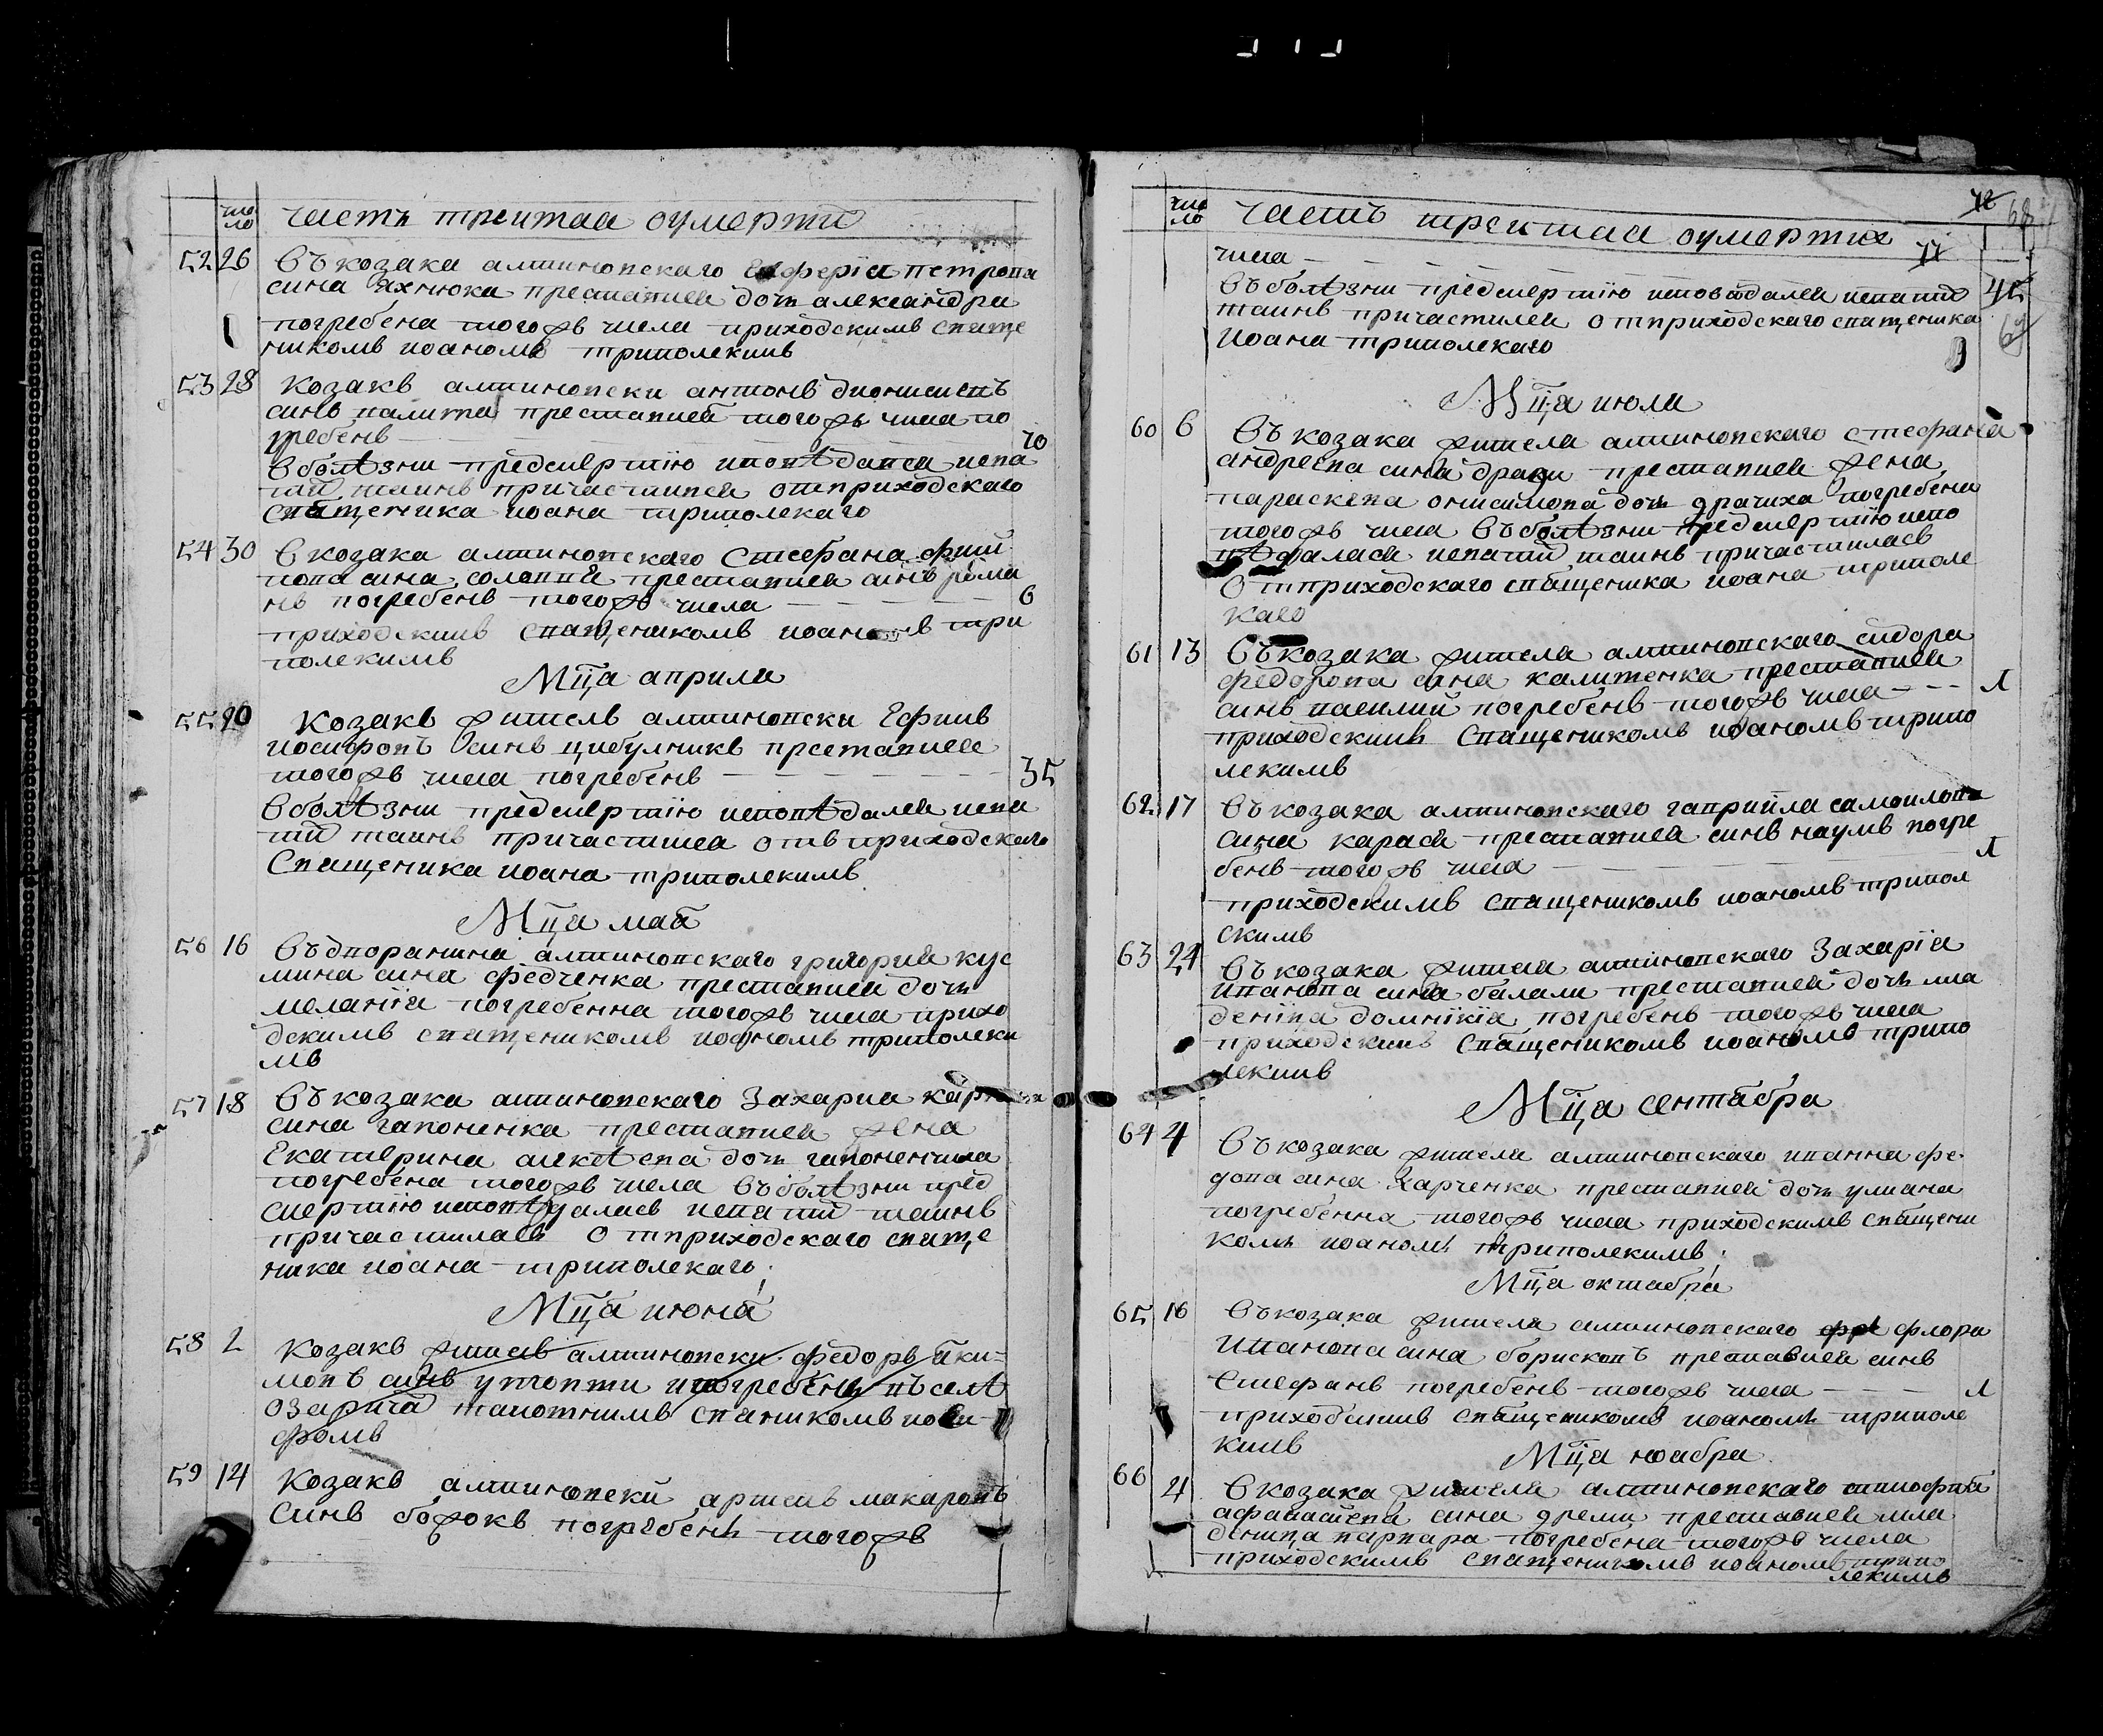 число
часть третая оумертй
52 26 Въ козака алтиновскаго Елферія петрова
сина яхнюка преставися дочь александра
погребена того жъ числа приходскимъ свяще
никомъ иоаномъ триполскимъ
53 28 Козакъ алтиновски антонъ дионисиевъ
синъ калита преставися того жъ числа по
гребенъ 70
В болѣзни предсмертію исповѣдався исвя
тй таинъ причастився отприходскаго
священика иоана триполскаго
54 30 В козака алтиновскаго Стефана фили
пова сина солапия преставися синъ рома
нъ погребенъ того жъ числа 6
приходскимъ священикомъ иоаномъ три
полскимъ
Мца априля
55 20 Козакъ житель алтиновски Ефимъ
иосифовъ синъ цибулникъ преставися
того жъ числа погребенъ 35
В болѣзни предсмертію исповѣдался исвя
тй таинъ причастився отъ приходскаго
Священика иоана триполскимъ
Мца мая
56 16 Въ дворянина алтиновскаго григория кус
мина сина федченка преставися дочь
меланія погребенна того жъ числа прихо
дскимъ священикомъ иоаномъ триполски
мъ
57 18 Въ козака алтиновскаго Захария
сина гапоненка преставися жена
Екатерина алексѣева дочь гапоненчиха
погребена того жъ числа Въ болѣзни пред
смертію исповѣдалась исвятй таинъ
причастилась отприходскаго свяще
ника иоана триполскаго
Мца июня
58 2 Козакъ житель алтиновски федоръ яки
мовъ синъ утопти и погребенъ въ селѣ
озарича тамотнимъ свяникомъ иоси
фомъ
59 14 Козакъ алтиновски артемъ макаровъ
синъ божокъ погребенъ того жъ
число
часть третая оумертих
числа
Въ болѣзни предсмертію исповѣдался исвятй 45
таинъ причастился отприходскаго священика
Иоана триполскаго
Мца июля
60 6 Въ козака жителя алтиновскаго стефана
андреева сина драги преставися жена
параскева онисимова дочь драчиха погребена
того жъ числа Въ болѣзни предсмертію испо
вѣдалася исвятй таинъ причастилась
Отприходскаго священика иоана триполс
каго
61 13 Въ козака жителя алтиновскаго сидора
федорова сина калитенка преставися
синъ василий погребенъ того жъ числа л
приходскимъ священикомъ иоаномъ трипо
лскимъ
62 17 Въ козака алтиновскаго гаврийла самоилова
сина карася преставися синъ наумъ погре
бенъ того жъ числа л
приходскимъ священикомъ иоаномъ трипол
скимъ
63 24 Въ козака жителя алтиновскаго Захарія
иванова сина балали преставися дочь мла
деніца домнікія погребенъ того жъ числа
приходскимъ священикомъ иоаномъ трипо
лскимъ
Мца сентабра
64 4 Въ козака жителя алтиновскаго иванна фе
дова сина Харченка преставися дочь улиана
погребенна того жъ числа приходскимъ священи
комъ иоаномъ триполскимъ
Мца октабра
65 16 Въ козака жителя алтиновскаго флора
Иванова сина борисковъ преставися синъ
Стефанъ погребенъ того жъ числа л
приходскимъ священикомъ иоаномъ триполс
кимъ
Мца ноабра
66 4 В козака жителя алтиновскаго тимофия
афанасиева сина дреми преставися мла
деница варвара погребена того жъ числа
приходскимъ священикомъ иоаномъ трипо
лскимъ